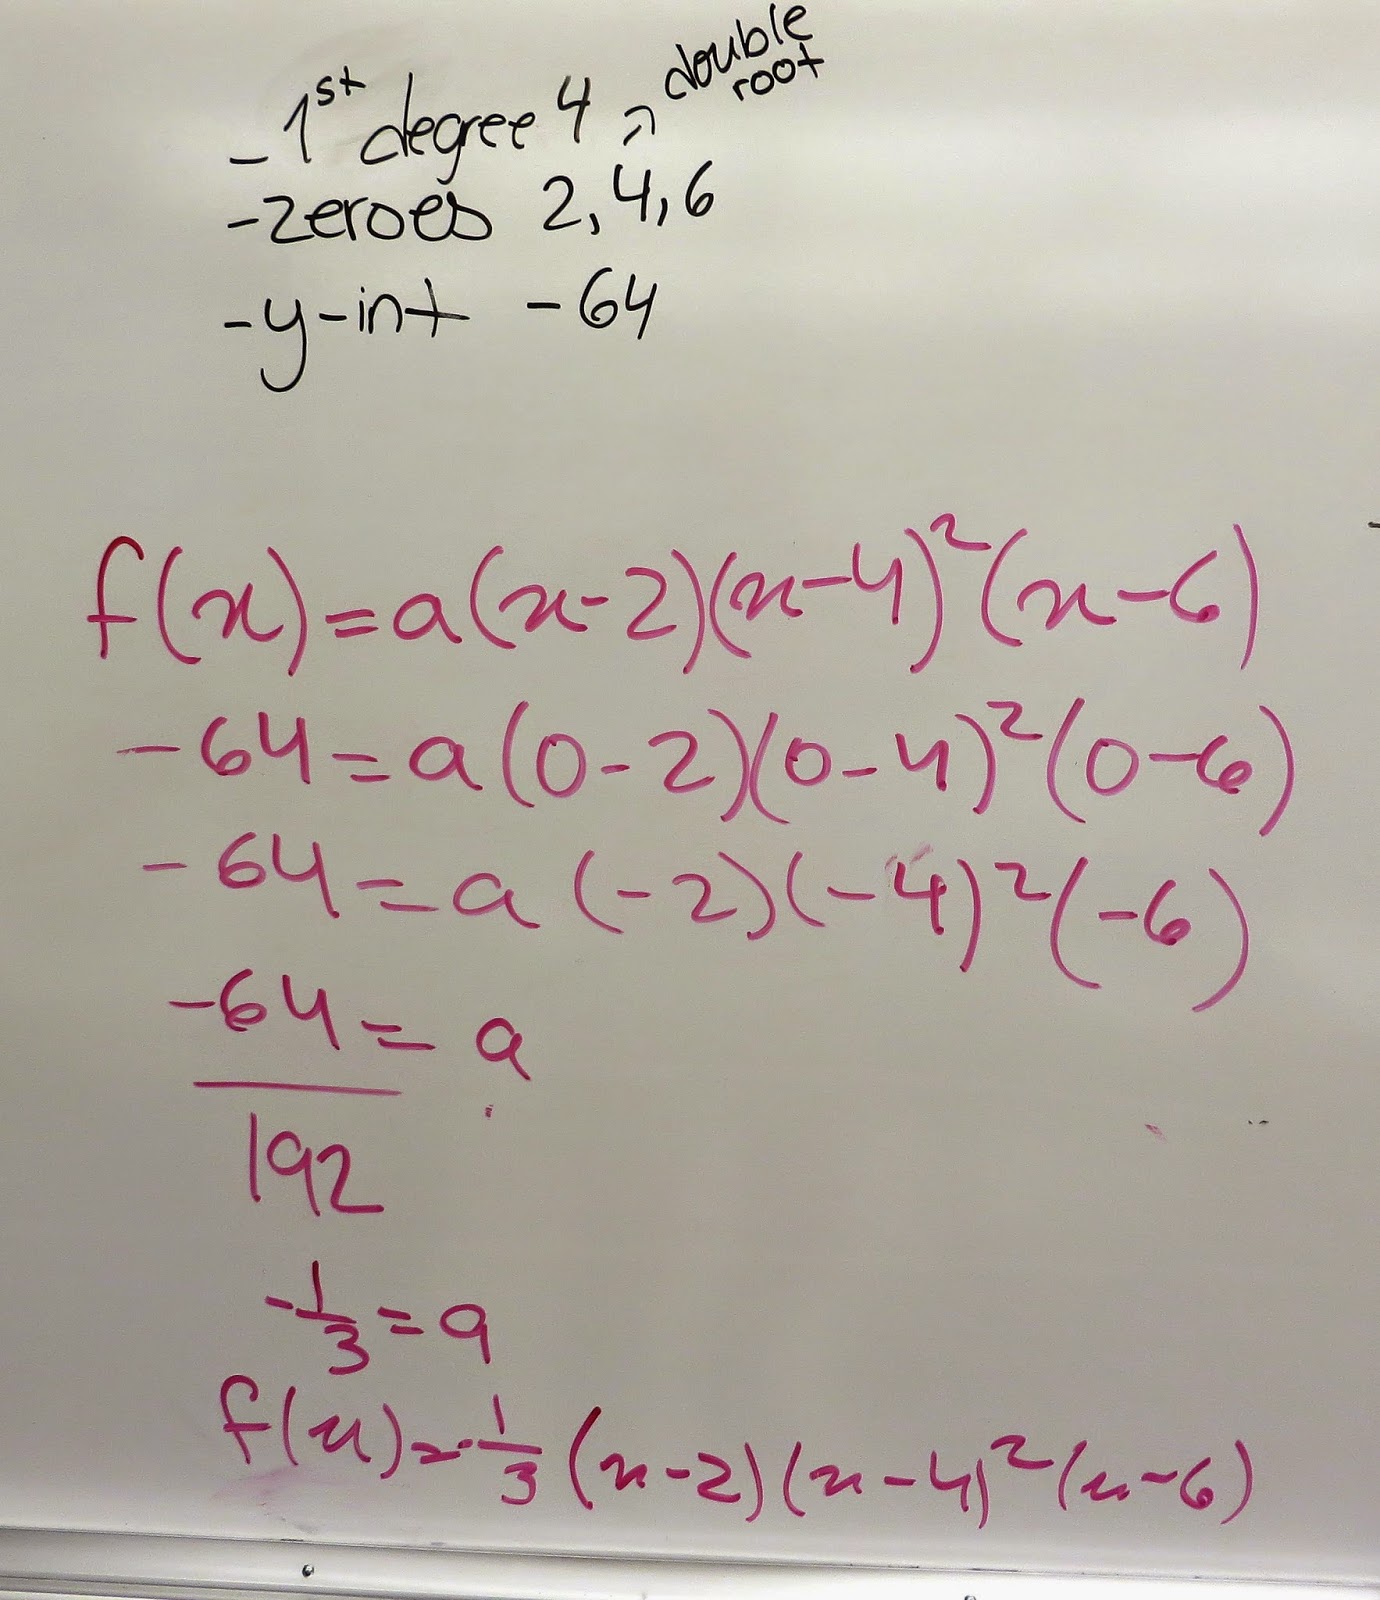 double
root
- 1st degree 4
- zeroes 2, 4, 6
- y-int -64
f(x) = a(x-2)(x-4)²(x-6)
-64 = a(0-2)(0-4)²(0-6)
-64 = a(-2)(-4)²(-6)
-64 = a
192
-1/3 = a
f(x) = -1/3 (x-2)(x-4)²(x-6)